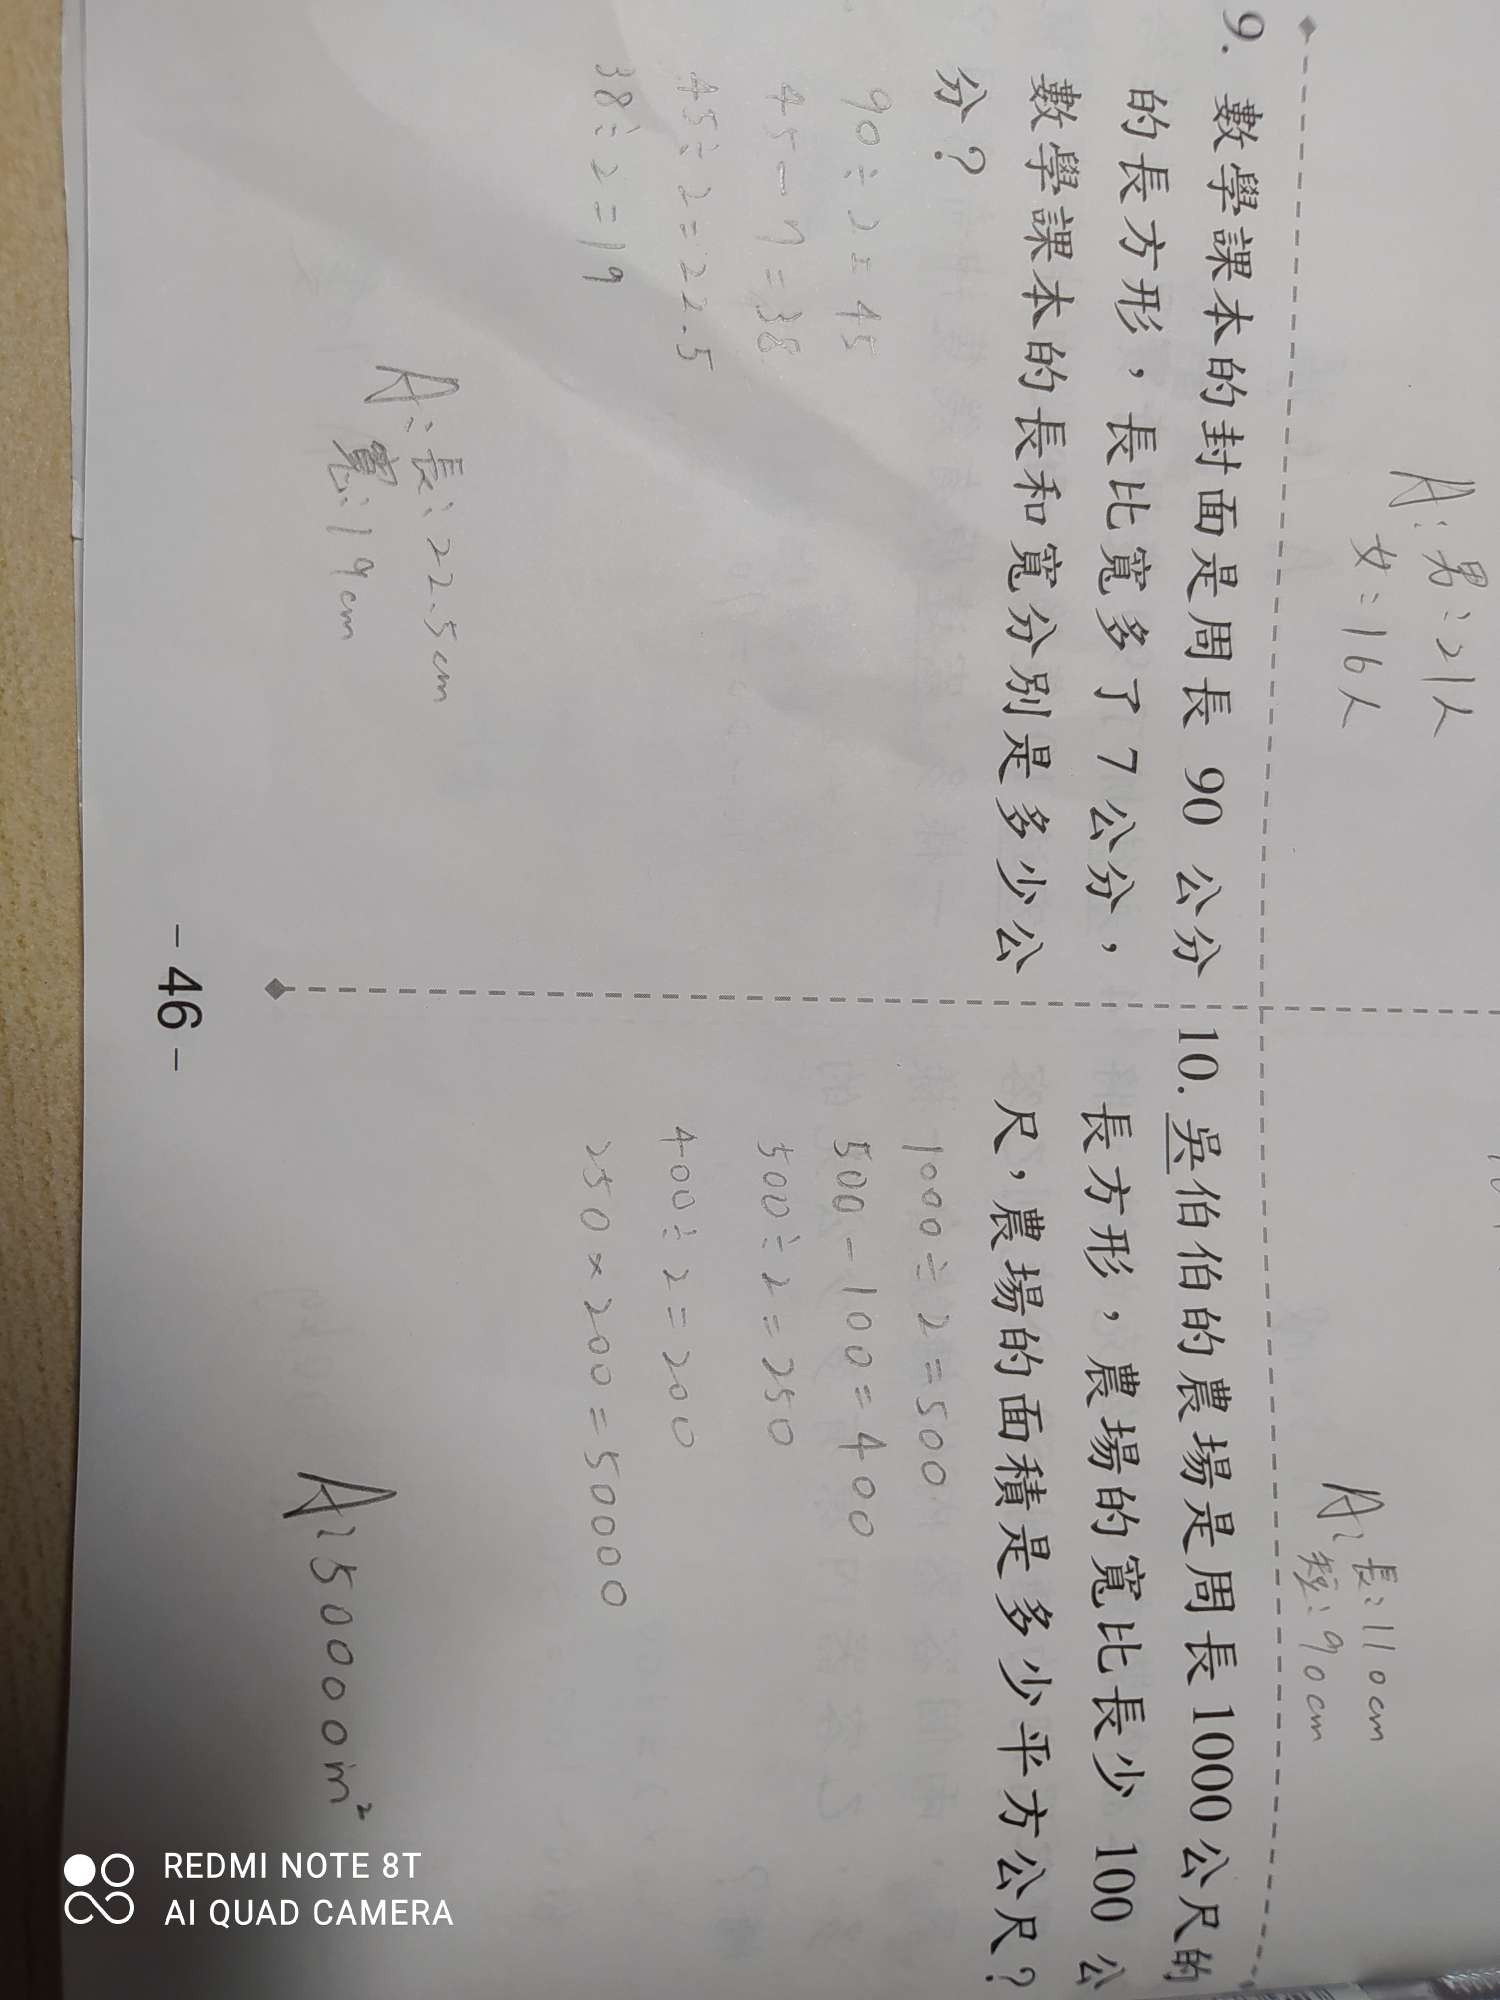 A:男:21人
女:16人
A:長:110cm
短:90cm
9. 數學課本的封面是周長 90 公分
的長方形，長比寬多了 7 公分，
數學課本的長和寬分別是多少公
分？
90÷2=45
45-7=38
45÷2=22.5
38÷2=19
A:長:22.5cm
寬:19cm
10. 吳伯伯的農場是周長 1000 公尺的
長方形，農場的寬比長少 100 公
尺，農場的面積是多少平方公尺？
1000÷2=500
500-100=400
500÷2=250
400÷2=200
250×200=50000
A:50000m²
- 46 -
REDMI NOTE 8T
AI QUAD CAMERA